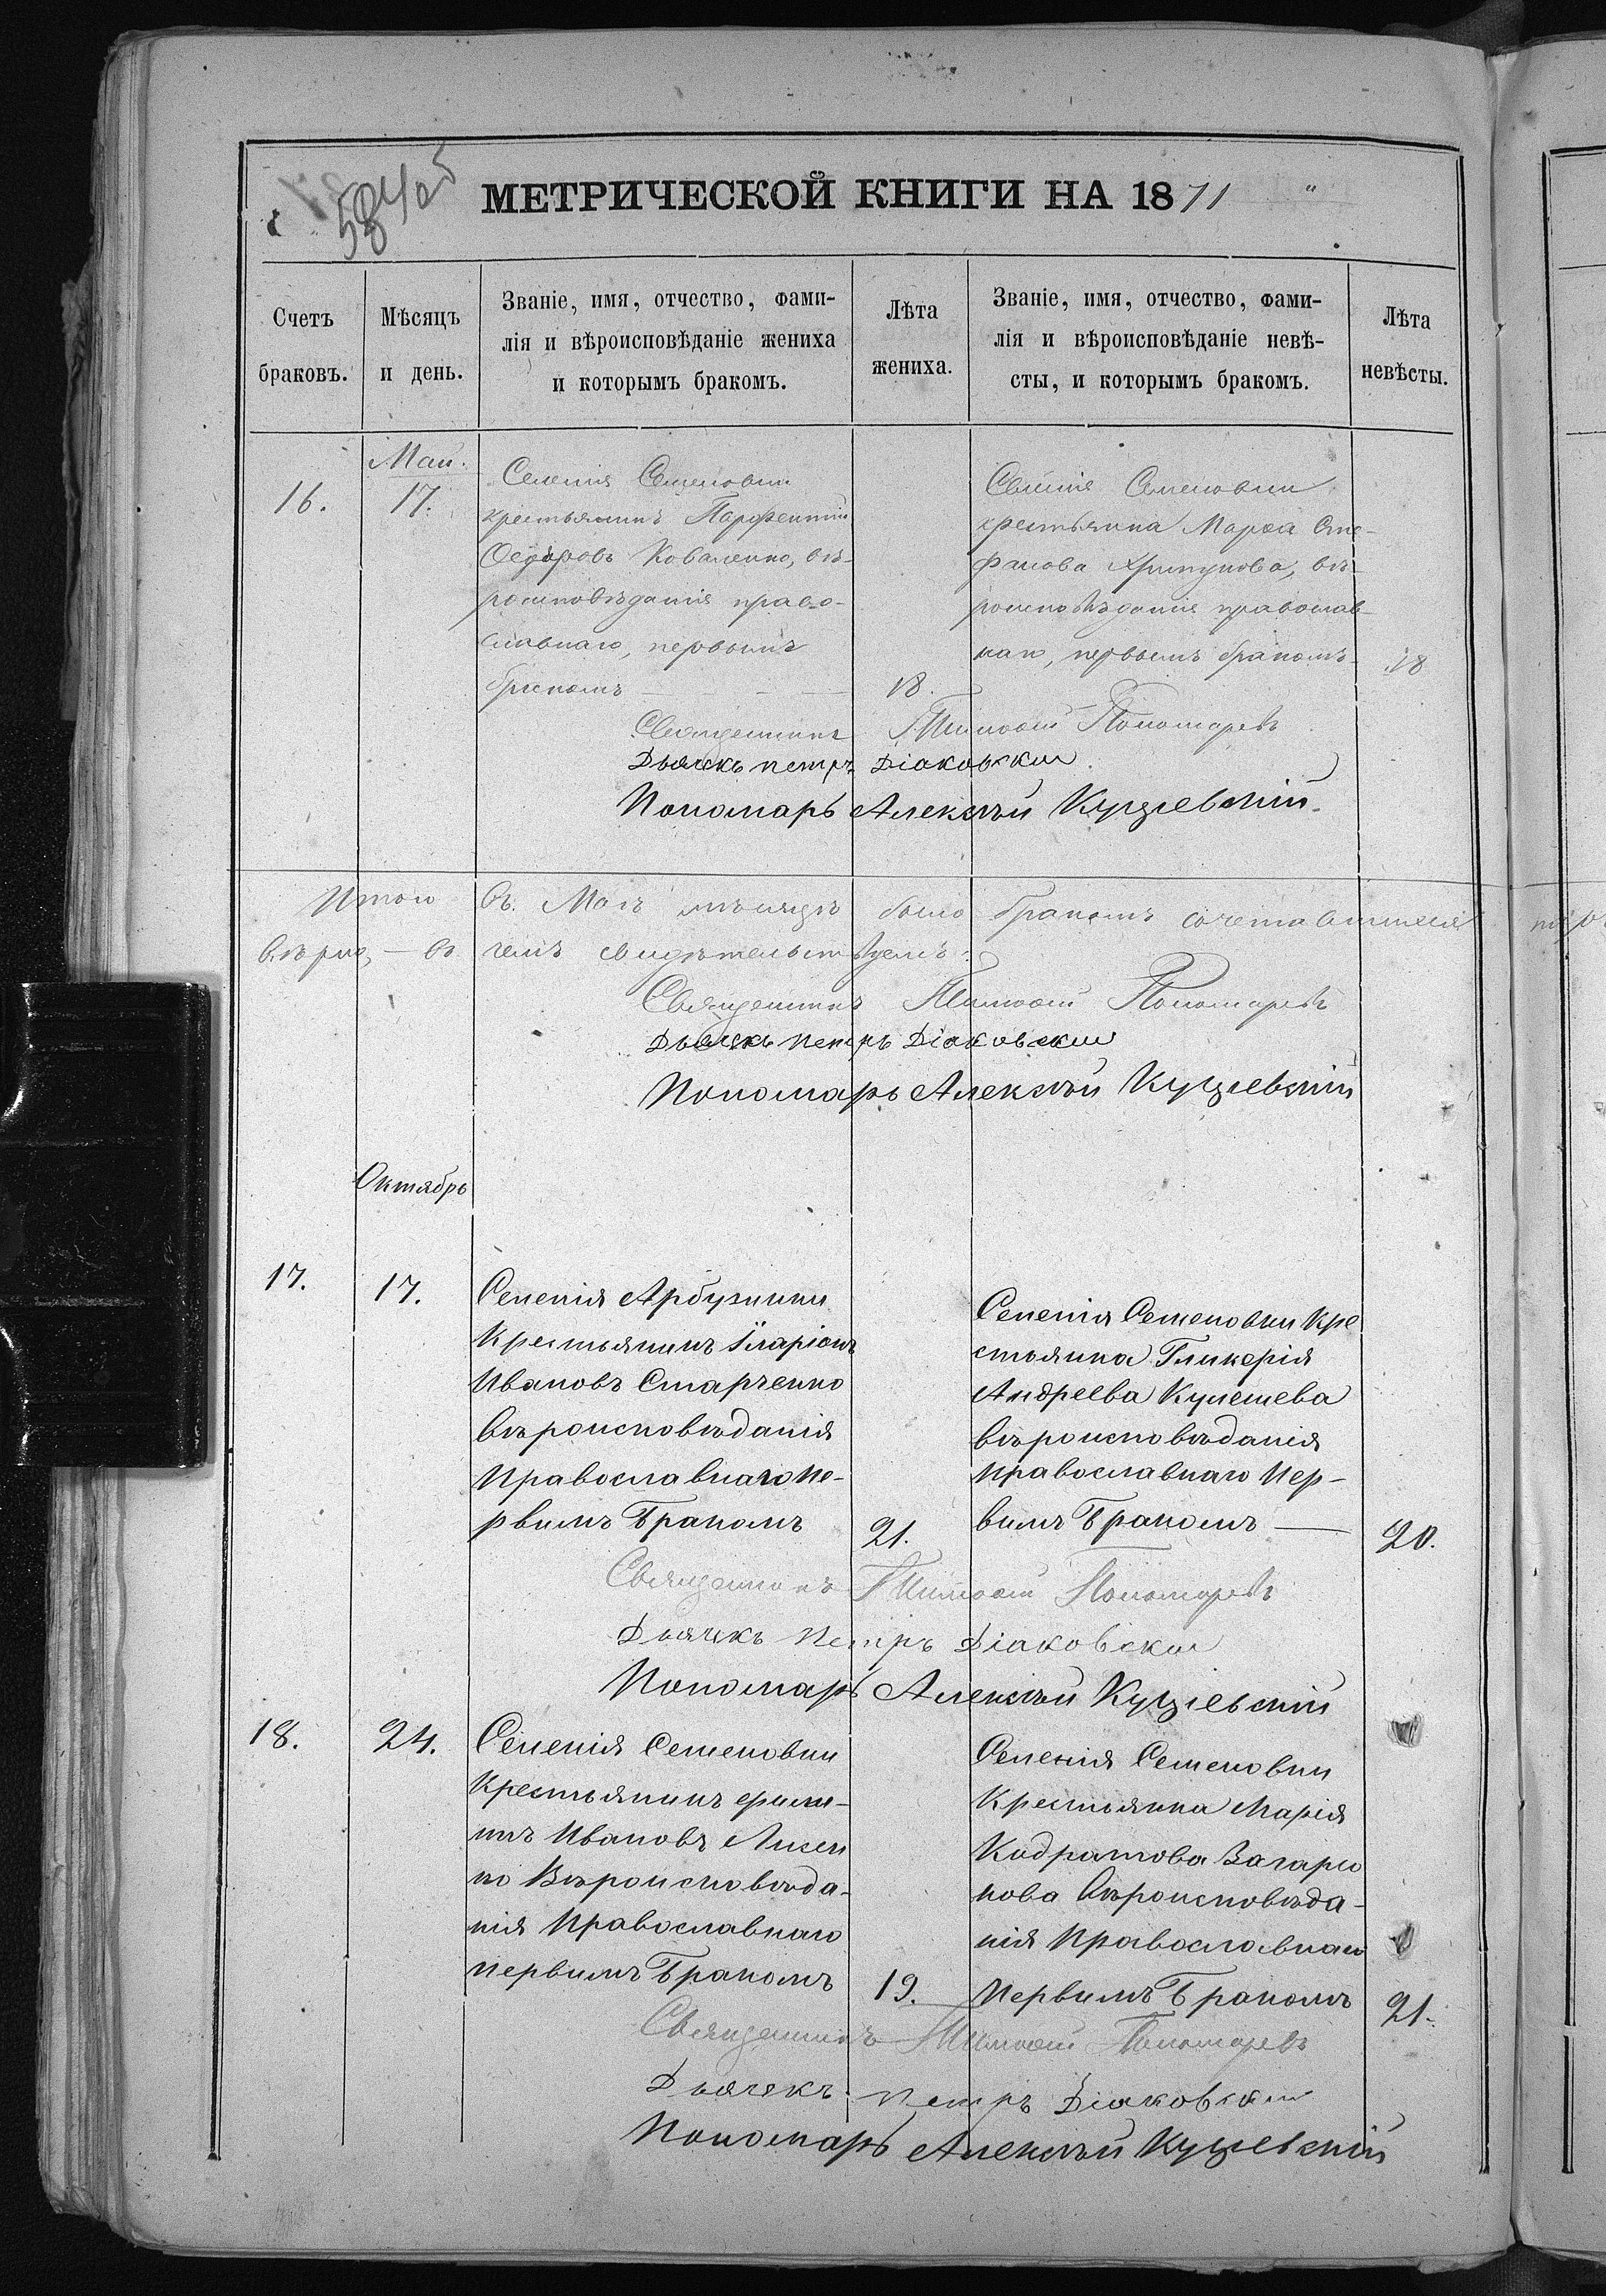 584об
МЕТРИЧЕСКОЙ КНИГИ НА 1871
Счетъ
браковъ.
Мѣсяцъ
и день.
Званіе, имя, отчество, фами-
лія и вѣроисповѣданіе жениха
и которымъ бракомъ.
Лѣта
жениха.
Званіе, имя, отчество, фами-
лія и вѣроисповѣданіе невѣ-
сты, и которымъ бракомъ.
Лѣта
невѣсты.
16.
Май.
17.
Селенія Семеновки
крестьянинъ Парфентій
Ѳедоровъ Коваленко, вѣ-
роисповѣданія право-
славнаго, первымъ
бракомъ
18.
Селенія Семеновки
крестьянка Марѳа Сте-
фанова Хрипунова, вѣ-
роисповѣданія православ-
наго, первымъ бракомъ
18
Священникъ Тимоѳей Пономаревъ
Дьячекъ петръ Діаковскии
Пономарь Алексѣй Куцѣевскій
Итого въ Маѣ мѣсяцѣ было бракомъ сочетавшихся
вѣрно, — въ чемъ свидѣтельствуемъ:
Священникъ Тимоѳей Пономаревъ
Дьячекъ петръ Діаковскии
Пономарь Алексѣй Куцѣевскій
Октябрь
17.
17.
Селенія Арбузинки
Крестьянинъ Иларіонъ
Ивановъ Старченко
Вѣроисповѣданія
Православнаго Пе-
рвимъ Бракомъ
21.
Селенія Семеновки Кре
стьянка Гликерія
Андреева Кулешева
вѣроисповѣданія
православнаго Пер-
вимъ Бракомъ —
20.
Священникъ Тимоѳей Пономаревъ
Дьячекъ Петръ Діаковскии
Пономарь Алексѣй Куцѣевскій
18.
24.
Селенія Семеновки
Крестьянинъ
Ивановъ Лисен
ко Вѣроисповѣда-
нія Православнаго
первимъ Бракомъ
19.
Селенія Семеновки
Крестьянка Марія
Кодратова
Вѣроисповѣда-
нія Православнаго
Первимъ Бракомъ
21.
Священникъ Тимоѳей Пономаревъ
Дьячекъ петръ Діаковскии
Пономарь Алексѣй Куцѣевскій